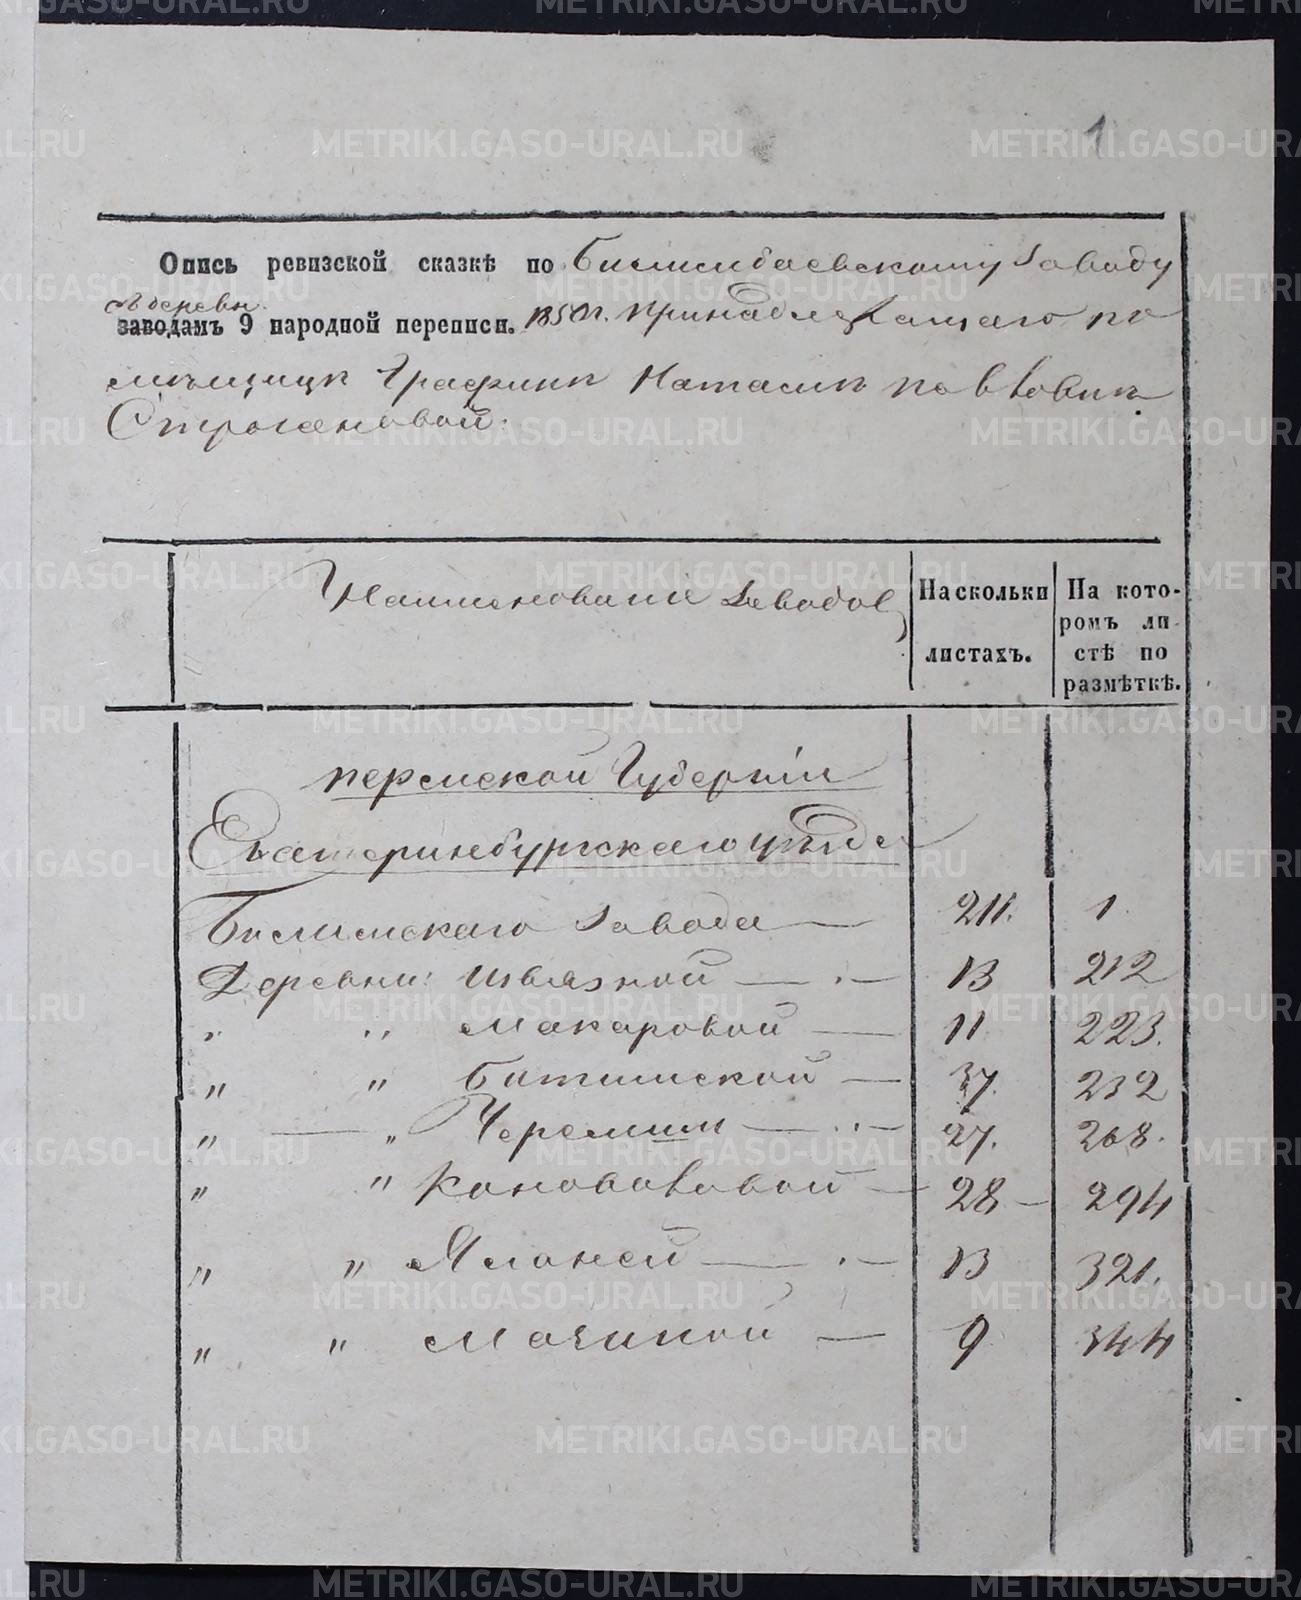 1
Опись ревизской сказкѣ по Билимбаевскому заводу
съ деревн.
заводамъ 9 народной переписи. 1850 г. принадлежащаго по
мѣщицѣ Графинѣ Наталіѣ Павловнѣ
Строгановой.
Наименованіе заводовъ
На скольки листахъ.
На кото-
ромъ ли-
стѣ по
размѣткѣ.
Пермской Губерніи
Екатеринбургскаго уѣзда
Билимскаго завода — 211. 1
Деревни: Извязной — 13 212
„ „ Макаровой — 11 223.
„ „ Битимской — 37. 232
„ — „ Черемши — 27. 268.
„ „ Коноваловой — 28 — 294
„ „ Яланской — 13 321.
„ „ Мачиной — 9 344
METRIKI.GASO-URAL.RU